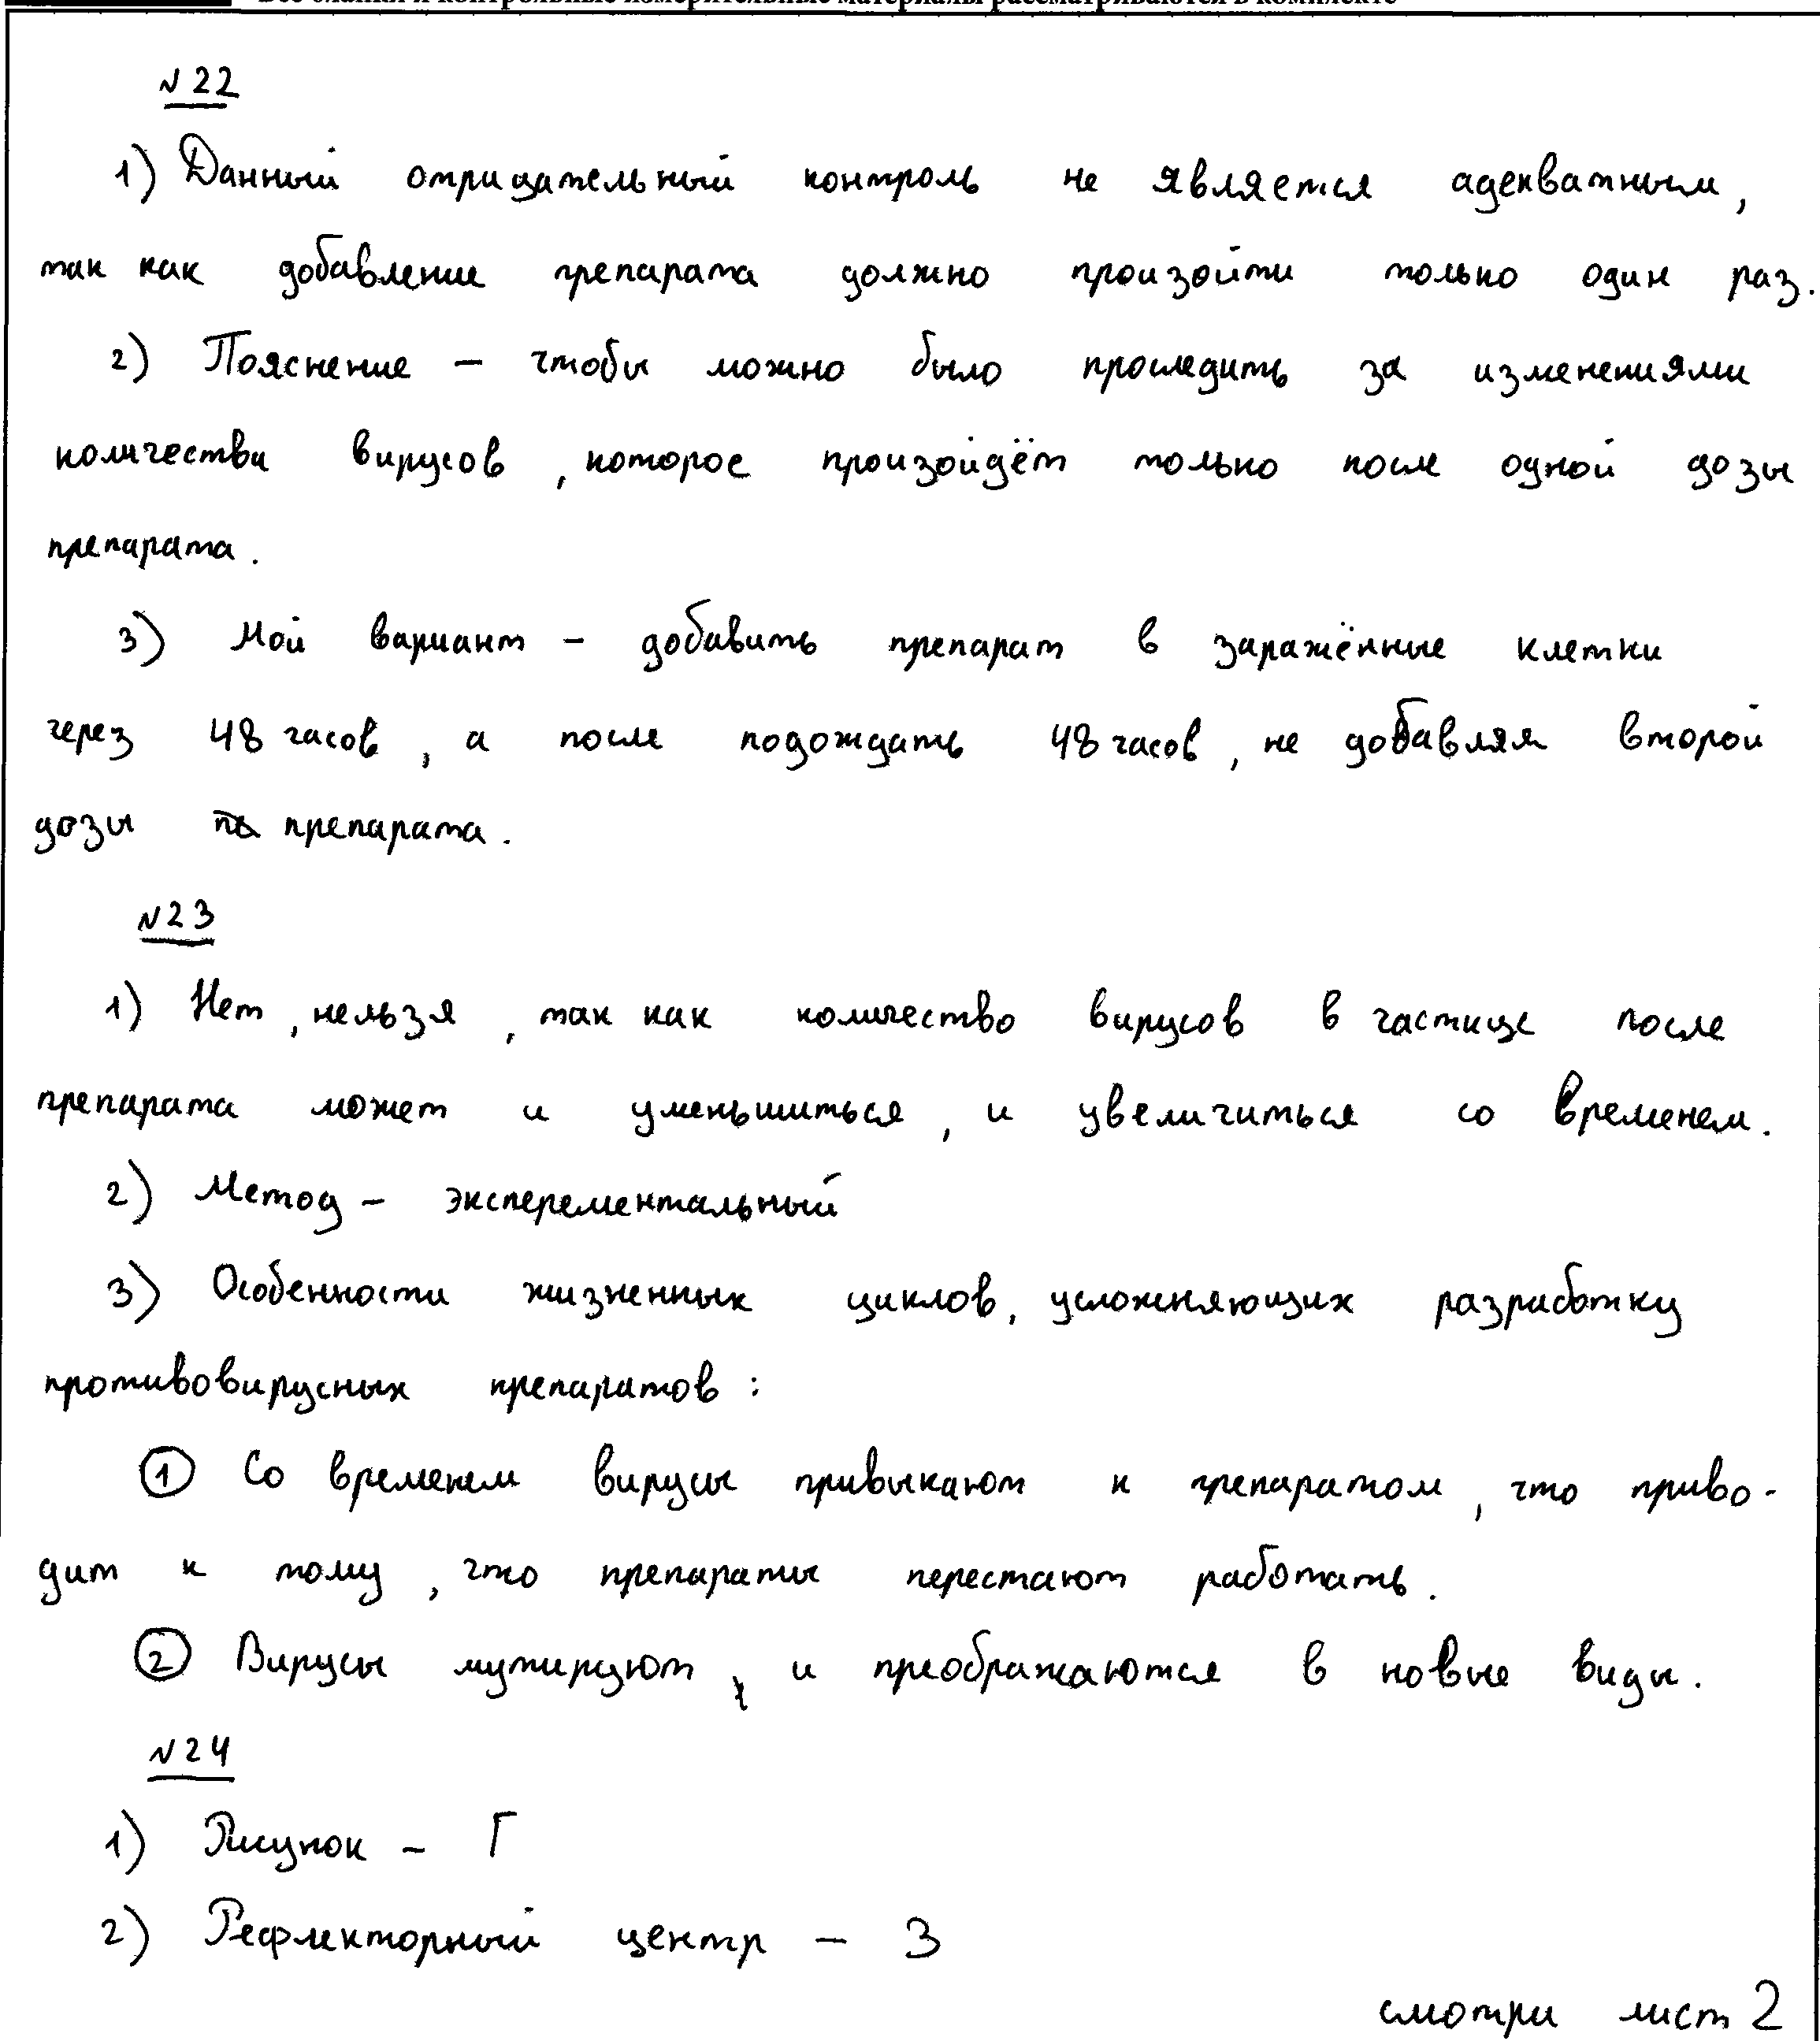 Все бланки и контрольные измерительные материалы рассматриваются в комплекте
№22
1) Данный отрицательный контроль не является адекватным,
так как добавление препарата должно произойти только один раз.
2) Пояснение – чтобы можно было проследить за изменениями
количества вирусов, которое произойдёт только после одной дозы
препарата.
3) Мой вариант – добавить препарат в заражённые клетки
через 48 часов, а после подождать 48 часов, не добавляя второй
дозы препарата.
№23
1) Нет, нельзя, так как количество вирусов в частице после
препарата может и уменьшиться, и увеличиться со временем.
2) Метод – эксперементальный
3) Особенности жизненных циклов, усложняющих разработку
противовирусных препаратов:
① Со временем вирусы привыкают к препаратом, что приво-
дит к тому, что препараты перестают работать.
② Вирусы мутируют, и преображаются в новые виды.
№24
1) Рисунок – Г
2) Рефлекторный центр – 3
смотри лист 2